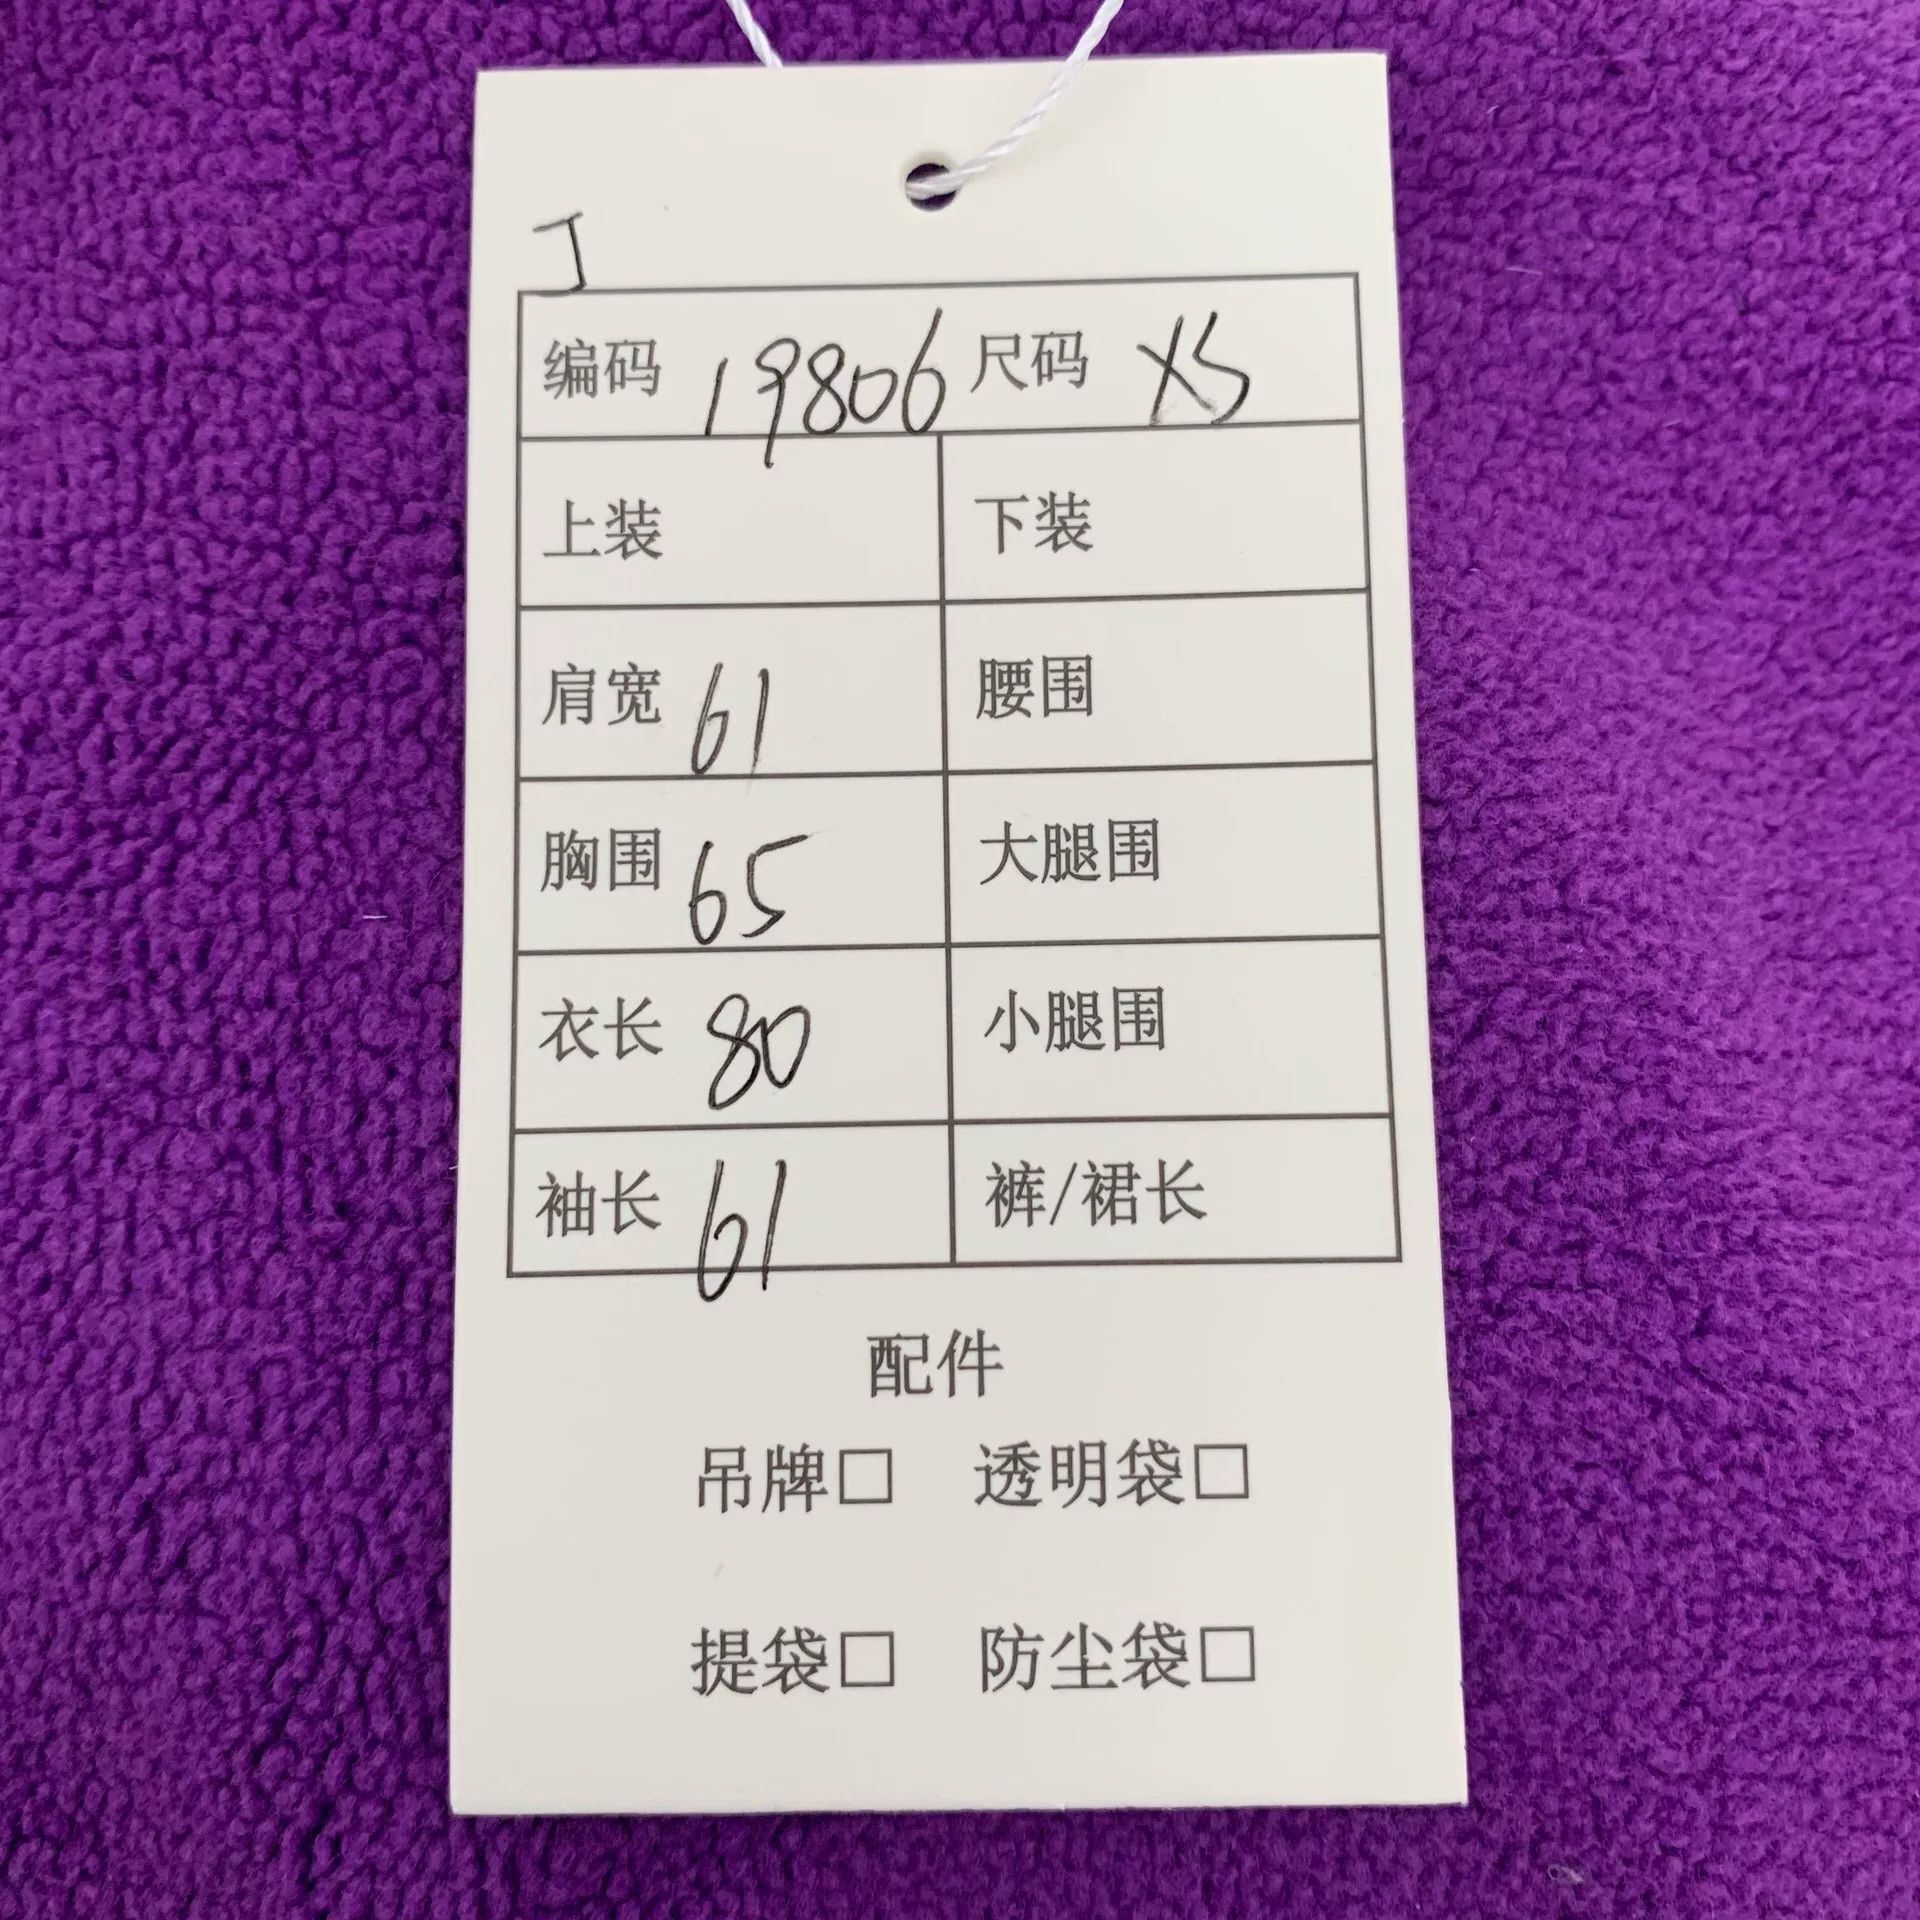 J
编码 19806 尺码 XS
上装 下装
肩宽 61 腰围
胸围 65 大腿围
衣长 80 小腿围
袖长 61 裤/裙长
配件
吊牌□ 透明袋□
提袋□ 防尘袋□